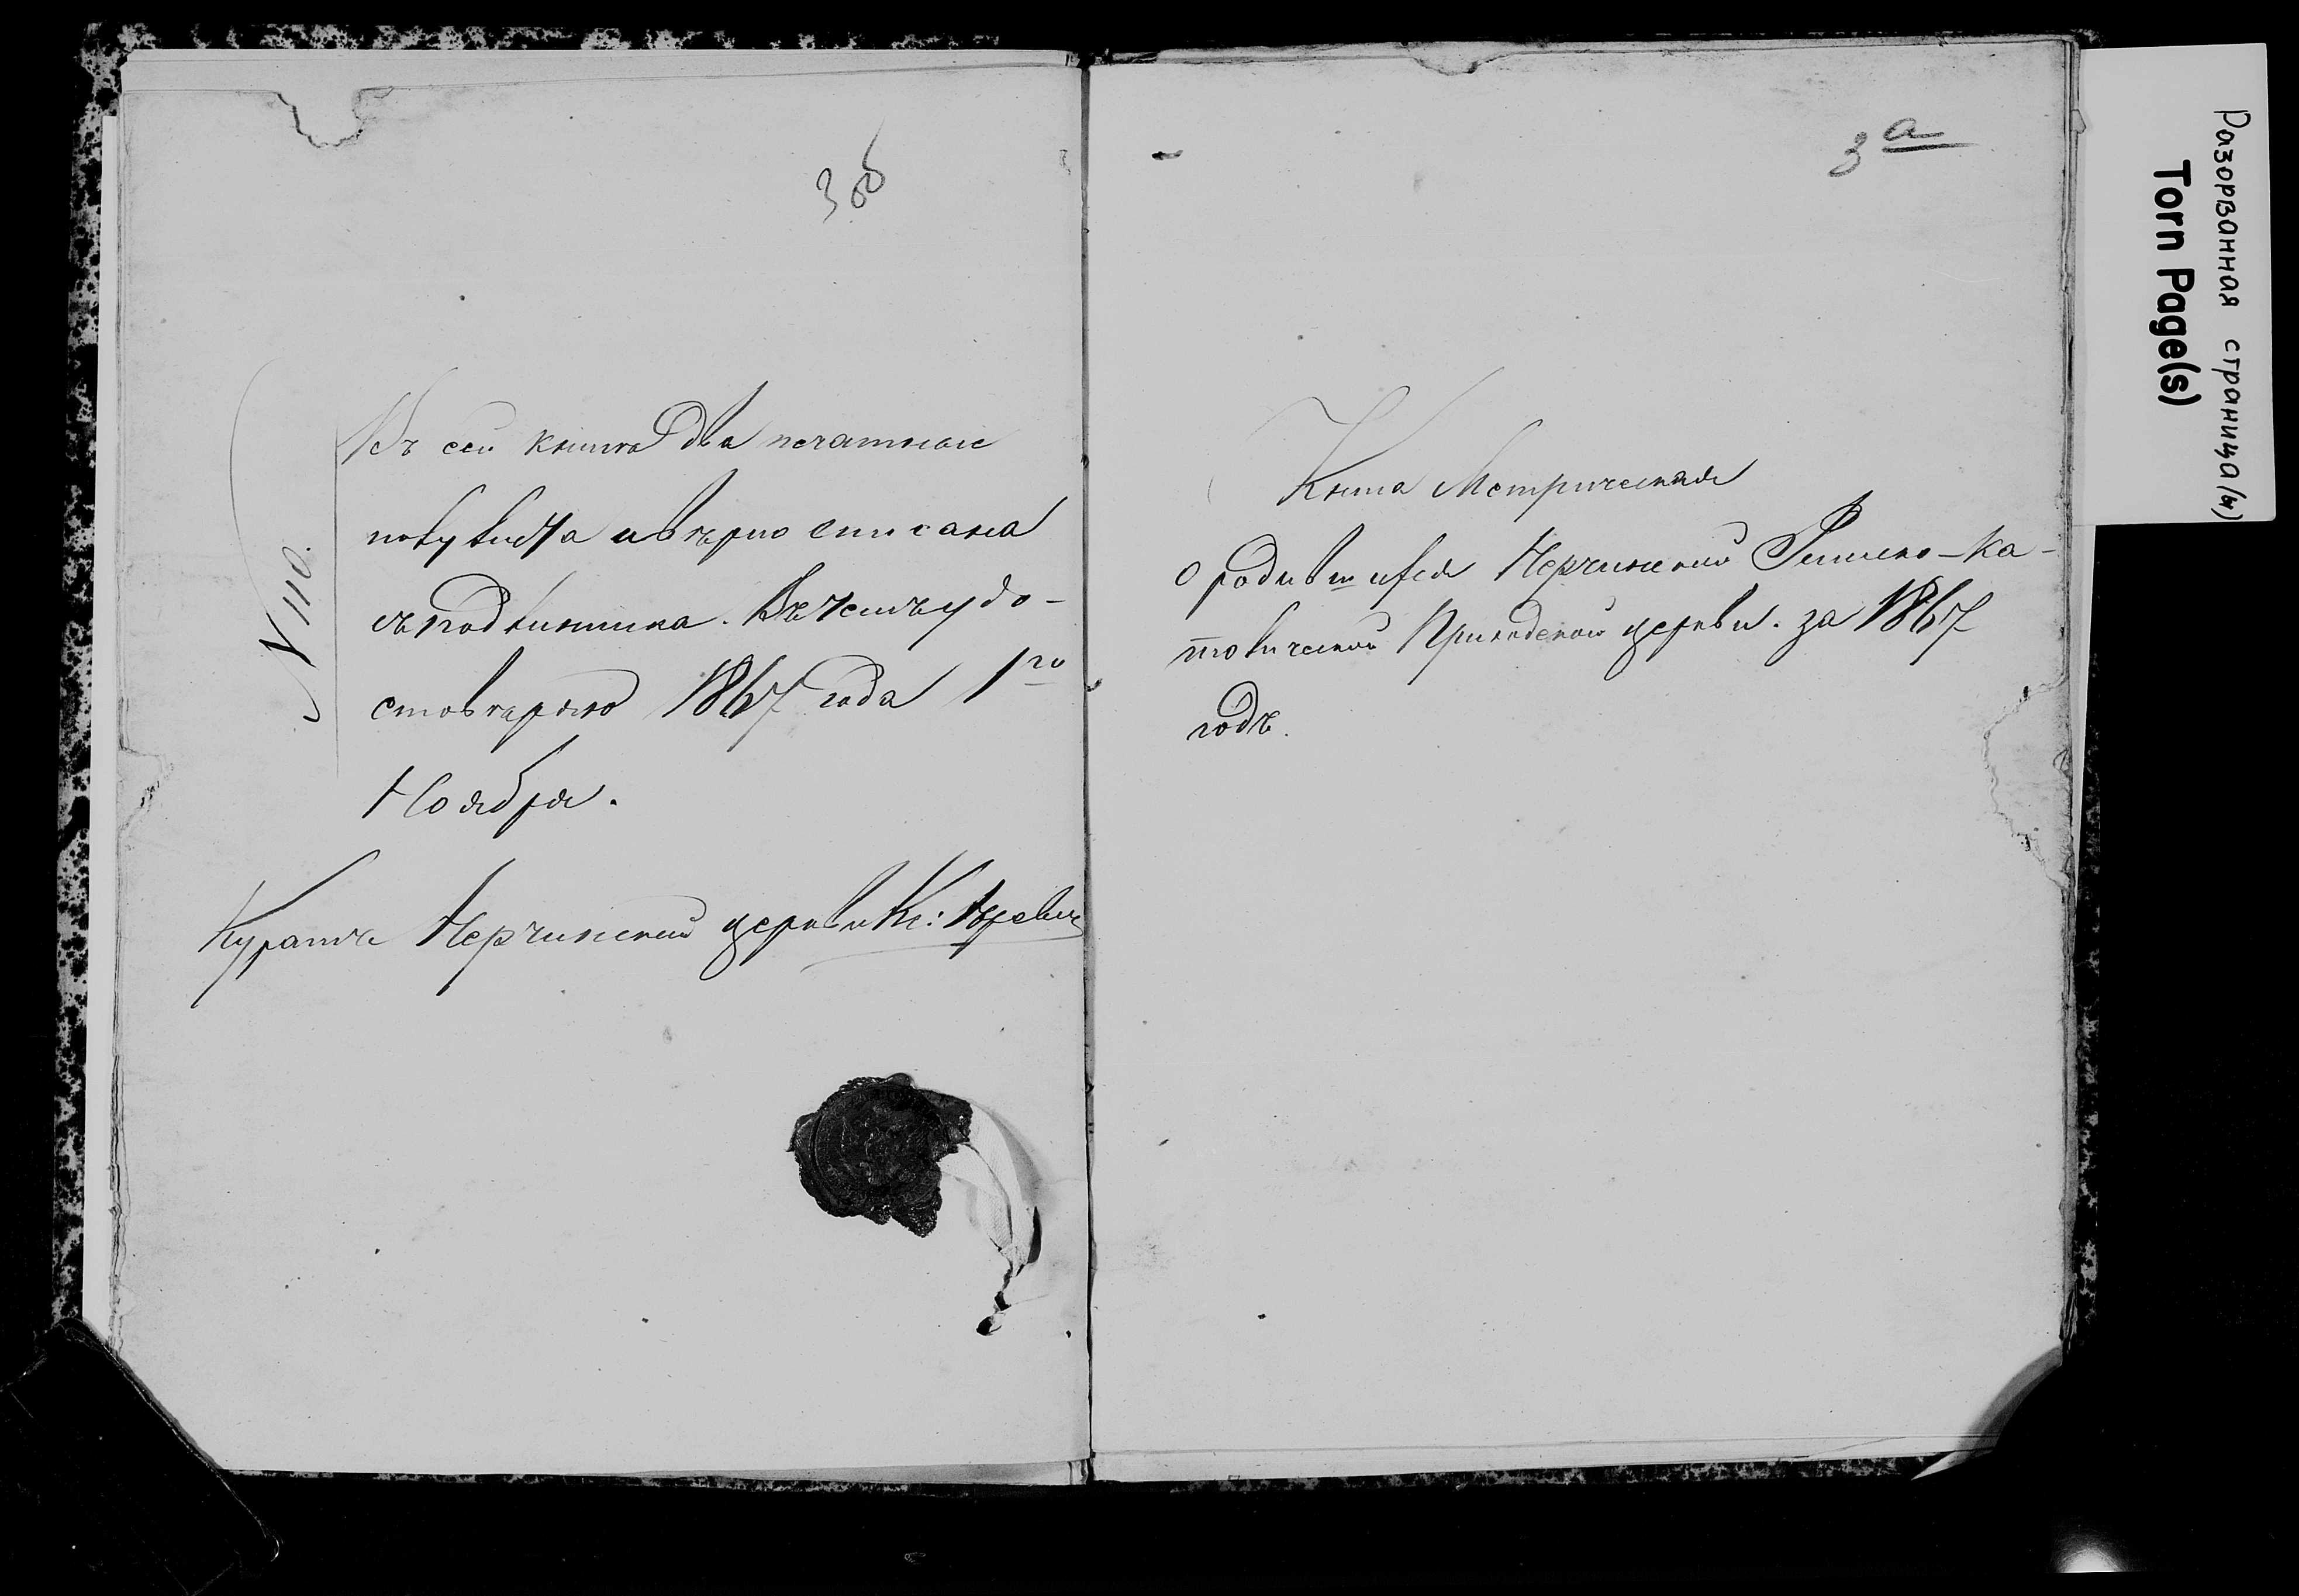 3 об
N 110.
Въ сей книга два печатные
полулиста и вѣрно списана
съ подлинника. Въ чемъ удо-
стовѣряю 1867 года 1го
Ноября.
Куратъ Нерчинской церкви Кс:
3 а
Книга Метрическая
о родившихся Нерчинской Римско-Ка-
толической Приходской церкви. за 1867
годъ.
Разорванная страница(ы)
Torn Page(s)